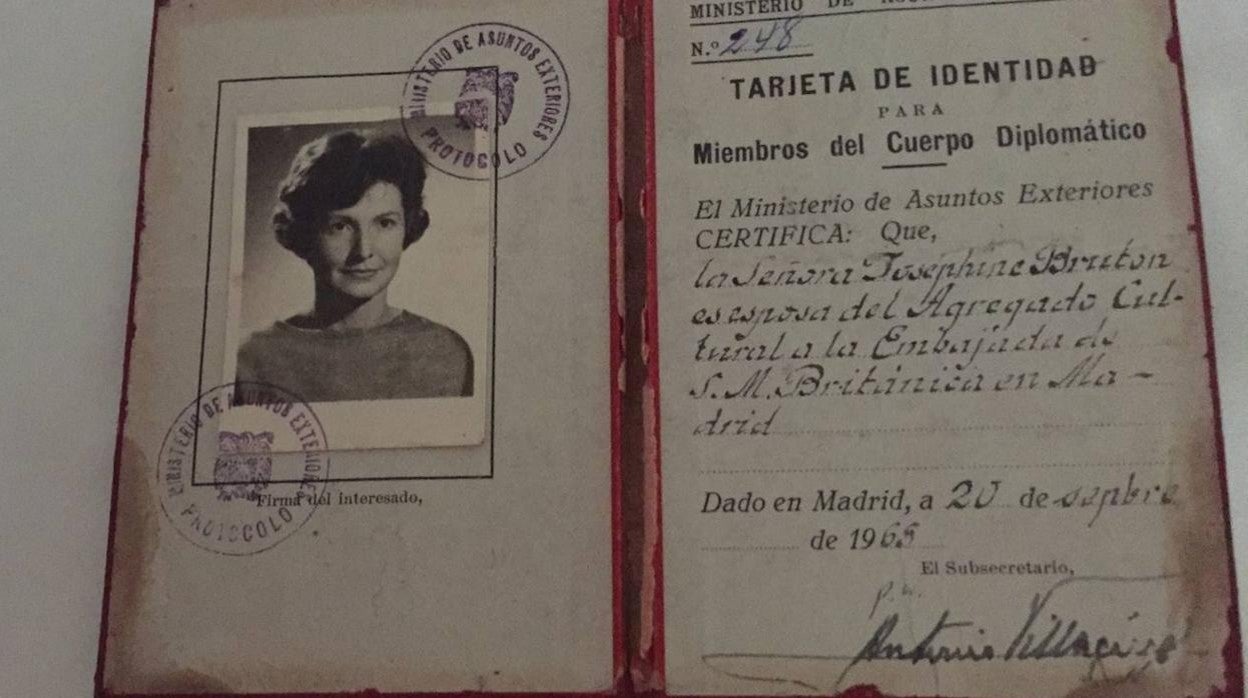 MINISTERIO DE ASUNTOS EXTERIORES
PROTOCOLO
MINISTERIO DE ASUNTOS EXTERIORES
PROTOCOLO
Firma del interesado,
MINISTERIO DE
N.º 248
TARJETA DE IDENTIDAD
PARA
Miembros del Cuerpo Diplomático
El Ministerio de Asuntos Exteriores
CERTIFICA: Que,
la Señora Josephine Bruton
es esposa del Agregado Cul-
tural a la Embajada de
S.M. Británica en Ma-
drid
Dado en Madrid, a 20 de sepbre
de 1965
El Subsecretario,
Antonio